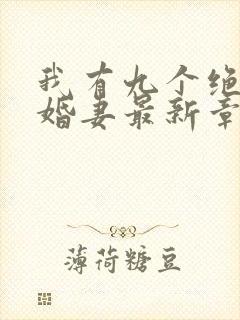 我有九个绝
婚妻最新章
薄荷糖豆